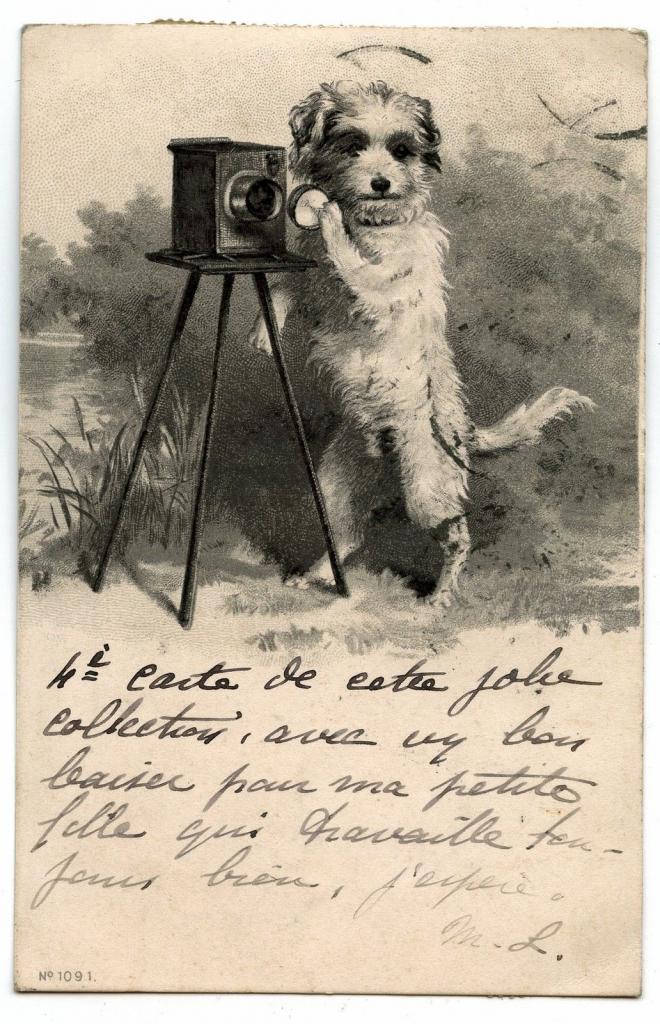 4è carte de cette jolie
collection, avec un bon
baiser pour ma petite
fille qui travaille tou-
jours bien, j'espère.
M. L.
Nº 1091.